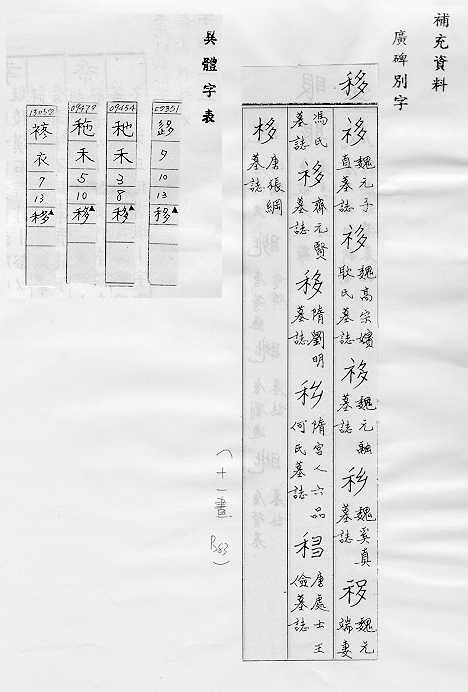 補充資料
廣碑別字
移
移 魏元子直墓誌 移 魏高宗嬪耿氏墓誌 移 魏元融墓誌 魏奚真墓誌 魏元端妻
馮氏墓誌 移 齊元賢墓誌 移 隋劉明墓誌 隋宮人六品何氏墓誌 唐處士王儉墓誌
栘 唐張綱墓誌
(十一畫 P.83)
異體字表
9
10
13
移▲
09454
禾
3
8
移▲
09470
禾
5
10
移▲
衣
7
13
移▲